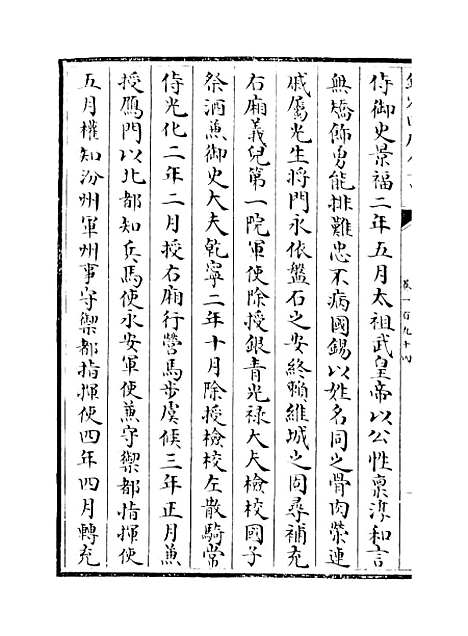 侍御史景福二年五月太祖武皇帝以公性稟淳和言
無矯飾勇能排難忠不病國錫以姓名同之骨肉榮連
戚屬光生將門永依盤石之安終賴維城之固尋補充
右廂義兒第一院軍使除授銀青光祿大夫檢校國子
祭酒兼御史大夫乾寧二年十月除授檢校左散騎常
侍光化二年二月授右廂行營馬步虞候三年正月兼
授鴈門以北都知兵馬使永安軍使兼守禦都指揮使
五月權知汾州軍州事守禦都指揮使四年四月轉充